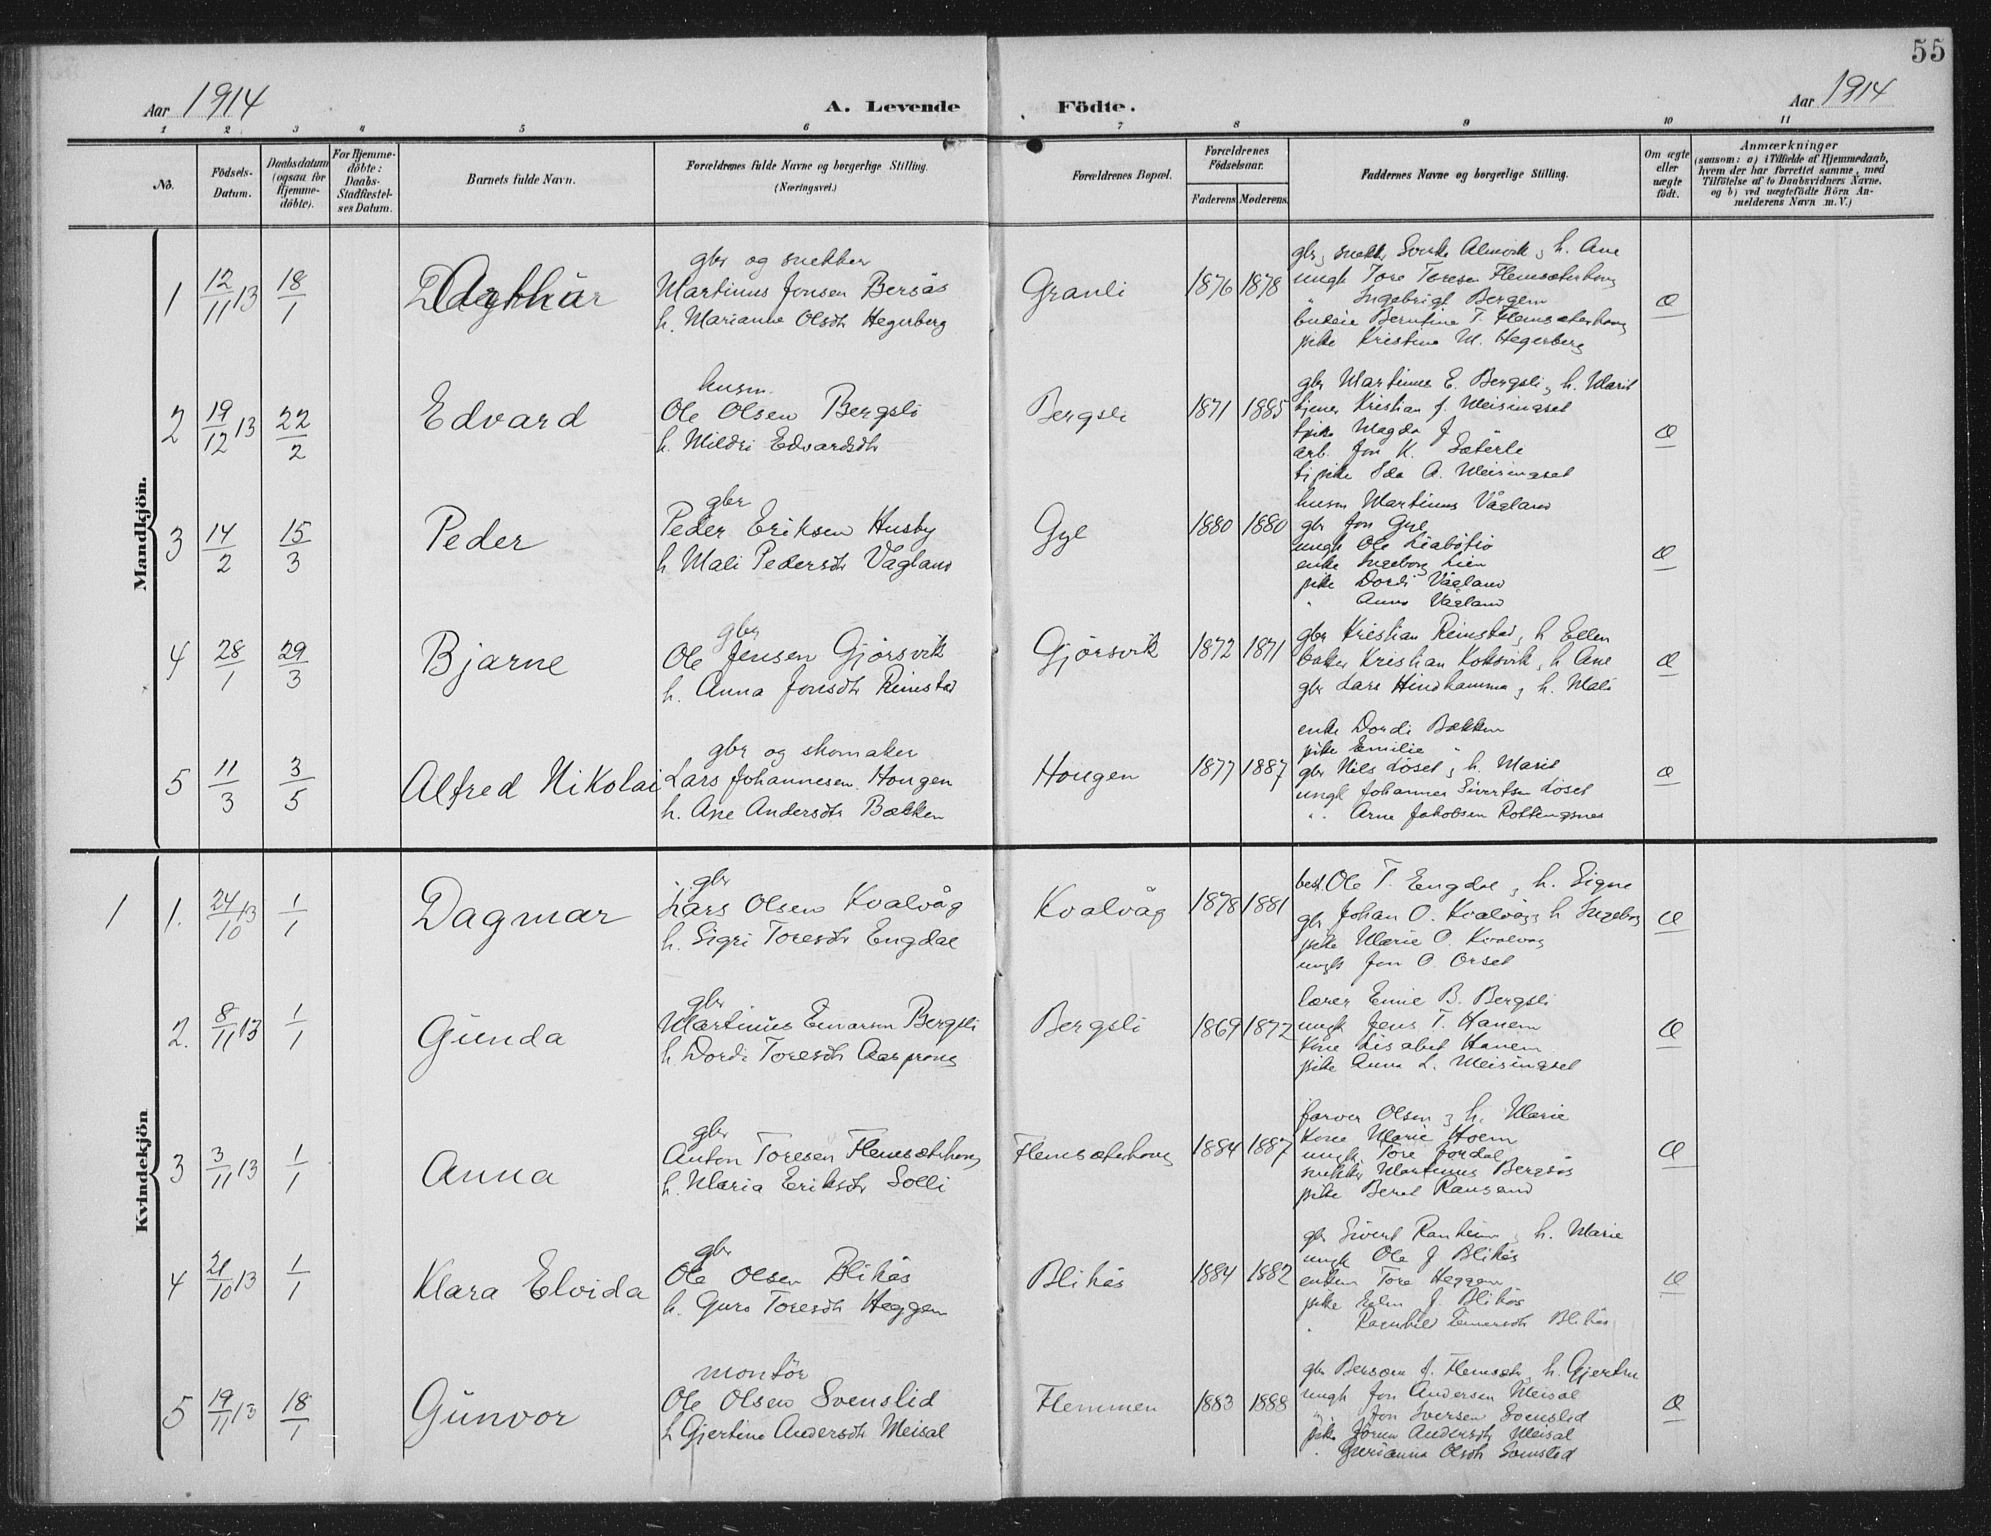 55
Aar 1914
A. Levende
Födte.
Aar 1914
1 2 3 4 5 6 7 8 9 10 11
No.
Födsels-Datum.
Daabsdatum (ogsaa for Hjemme-döbte).
For Hjemme-döbte: Daabs-Stadfæstel-ses Datum.
Barnets fulde Navn.
Forældrenes fulde Navne og borgerlige Stilling. (Næringsvei.)
Forældrenes Bopæl.
Forældrenes Födselsaar.
Faderens. Moderens.
Faddernes Navne og borgerlige Stilling.
Om ægte eller uægte födt.
Anmærkninger
(saasom: a) i Tilfælde af Hjemmedaab, hvem der har forrettet samme, med Tilföielse af to Daabsvidners Navne, og b) ved uægtefödte Börn An-melderens Navn m. V.)
Mandkjön.
1 12/11 13 18/1
gbr og snekker
Martinus Jonsen Bersås
h. Marianne Olsdtr Hegerberg
Granli 1876 1878
h. Ane
ungk Tore Toresen Flemsæterhaug
" Ingebrigt Bergem
budeie Berntine T. Flemsæterhaug
pike Kristine M. Hegerberg
Æ
2 19/12 13 22/2 Edvard
husm.
Ole Olsen Bergsli
h. Mildri Edvardsdtr
Bergsli 1871 1885
gbr Martinus E. Bergsli, h. Marit
tjener Kristian J. Meisingset
tjpike Magda J. "
arb. Jon K. Sæterli
tjpike Ida A. Meisingset
Æ
3 14/2 15/3 Peder
gbr
Peder Eriksen Husby
h. Mali Pedersdtr Vågland
Gyl 1880 1880
husm Martinus Vågland
gbr Jon Gyl
ungk Ole Liabötrö
enke Ingeborg Lien
pike Dordi Vågland
" Anna Vågland
Æ
4 28/1 29/3 Bjarne
gbr
Ole Jensen Gjörsvik
h. Anna Jonsdtr Reinstad
Gjörsvik 1872 1871
gbr Kristian Reinstad, h. Ellen
baker Kristian Koksvik, h. Ane
gbr Lars Hindhammer, h. Mali
Æ
5 11/3 3/5 Alfred Nikolai
gbr og skomaker
Lars Johannesen Hougen
h. Ane Andersdtr Bækken
Hougen 1877 1887
enke Dordi Bækken
pike Emilie "
gbr Nils Löset, h. Marit
ungk Johannes Sivertsen Löset
" Arne Jakobsen Rottingsnes
Æ
Kvindekjön
1 1. 24/10 13 1/1 Dagmar
gbr
Lars Olsen Kvalvåg
h. Sigri Toresdtr Engdal
Kvalvåg 1878 1881
best. Ole T. Engdal, h. Signe
gbr Johan O. Kvalvåg, h. Ingeborg
pike Marie O. Kvalvåg
ungk Jon O. Orset
Æ
2. 8/11 13 1/1 Gunda
gbr
Martinus Einarsen Bergsli
h. Dordi Toresdtr Aasprong
Bergsli 1869 1872
lærer Einie B. Bergsli
ungk Jens T. Hanem
kone Lisabet Hanem
pike Anna L. Meisingset
Æ
3 3/11 13 1/1 Anna
gbr
Anton Toresen Flemsæterhaug
h. Maria Eriksdtr Solli
Flemsæterhaug 1884 1887
farver Olsen, h. Marie
kone Marie Hoem
ungk Tore Jordal
snekker Martinus Bergsås
pike Beret Ransand
Æ
4 21/10 13 1/1 Klara Elvida
gbr
Ole Olsen Blikås
h. Guro Toresdtr Heggem
Blikås 1884 1882
gbr Sivert Ranheim, h. Marie
ungk Ole J Blikås
enkem Tore Heggem
pike J. Blikås
" Ragnhild Einarsdtr Blikås
Æ
5 19/11 13 18/1 Gunvor
montör
Ole Olsen Svenslid
h Gjertine Andersdtr Meisal
Flemmen 1883 1888
gbr Bersvm J. Flemsæter, h. Gjertru
ungk Jon Andersen Meisal
" Jon Iversen Svenslid
pike Jörun Andersdtr Meisal
" Gurianna Olsdtr Svenslid
Æ